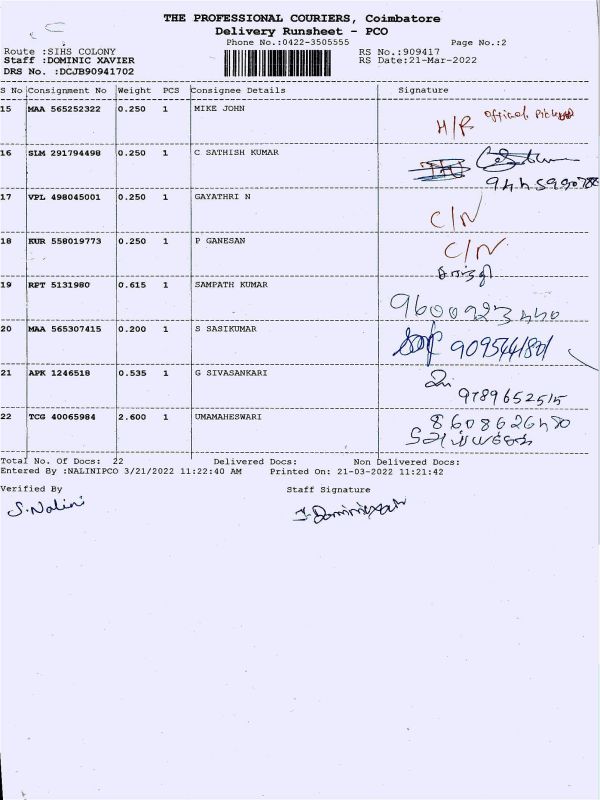 THE PROFESSIONAL COURIERS, Coimbatore
Delivery Runsheet - PCO
Phone No.:0422-3505555 Page No.:2
Route :SIHS COLONY RS No.:909417
Staff :DOMINIC XAVIER RS Date:21-Mar-2022
DRS No. :DCJB90941702
S No Consignment No Weight PCS Consignee Details Signature
15 MAA 565252322 0.250 1 MIKE JOHN
H/R offical Pickup
16 SLM 291794498 0.250 1 C SATHISH KUMAR
17 VPL 498045001 0.250 1 GAYATHRI N
C/N
18 KUR 558019773 0.250 1 P GANESAN
C/N
19 RPT 5131980 0.615 1 SAMPATH KUMAR
20 MAA 565307415 0.200 1 S SASIKUMAR
21 APK 1246518 0.535 1 G SIVASANKARI
9789652515
22 TCG 40065984 2.600 1 UMAMAHESWARI
Total No. Of Docs: 22 Delivered Docs: Non Delivered Docs:
Entered By :NALINIPCO 3/21/2022 11:22:40 AM Printed On: 21-03-2022 11:21:42
Verified By Staff Signature
S.Nalini